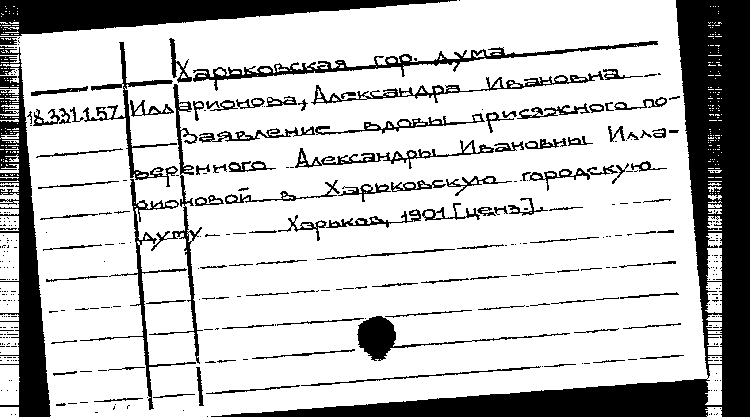 Харьковская гор. дума.
18.331.1.57. Илларионова, Александра Ивановна
Заявление вдовы присяжного по-
веренного Александры Ивановны Илла-
рионовой в Харьковскую городскую
думу. Харьков, 1901 [ценз.].